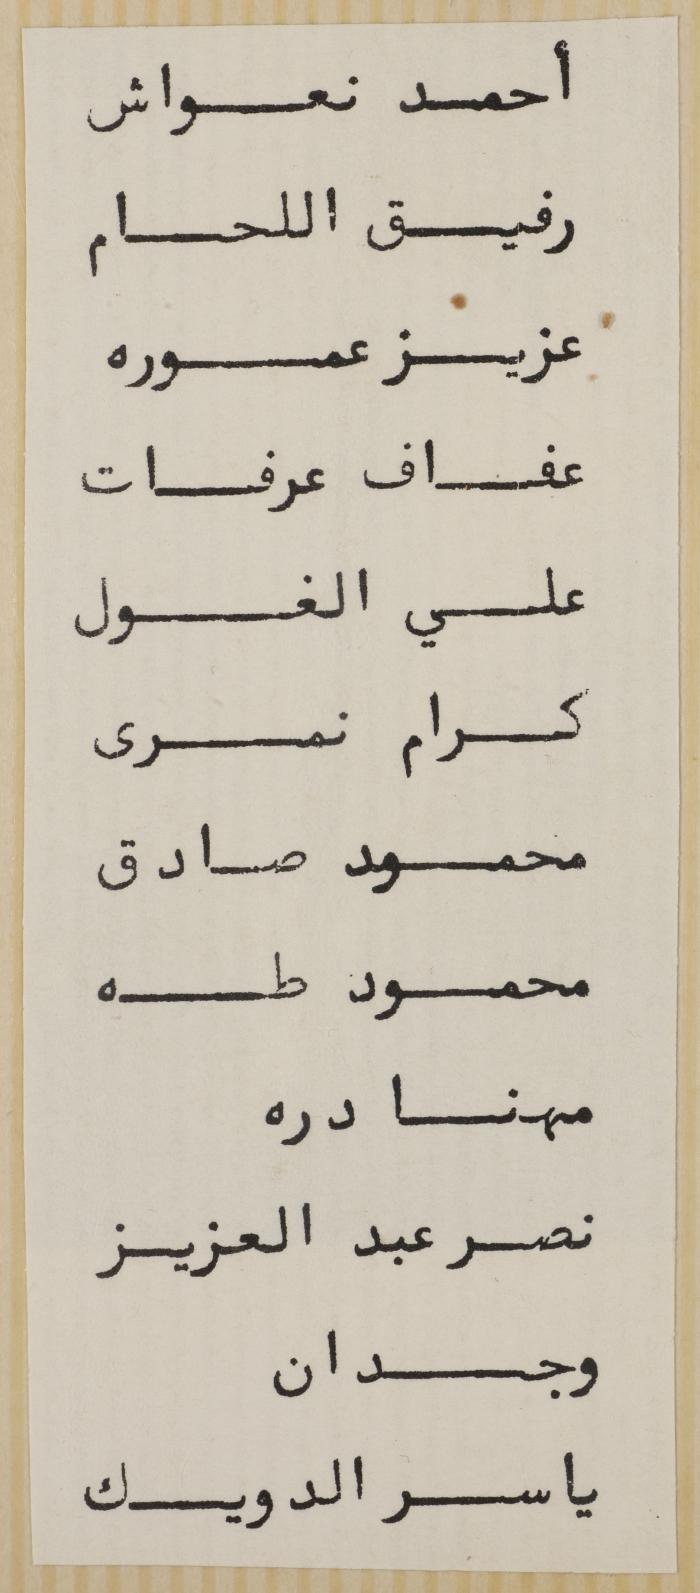 أحمد نعواش
رفيق اللحام
عزيز عموره
عفاف عرفات
علي الغول
كرام نمرى
محمود صادق
محمود طه
مهنا دره
نصر عبد العزيز
وجدان
ياسر الدويك